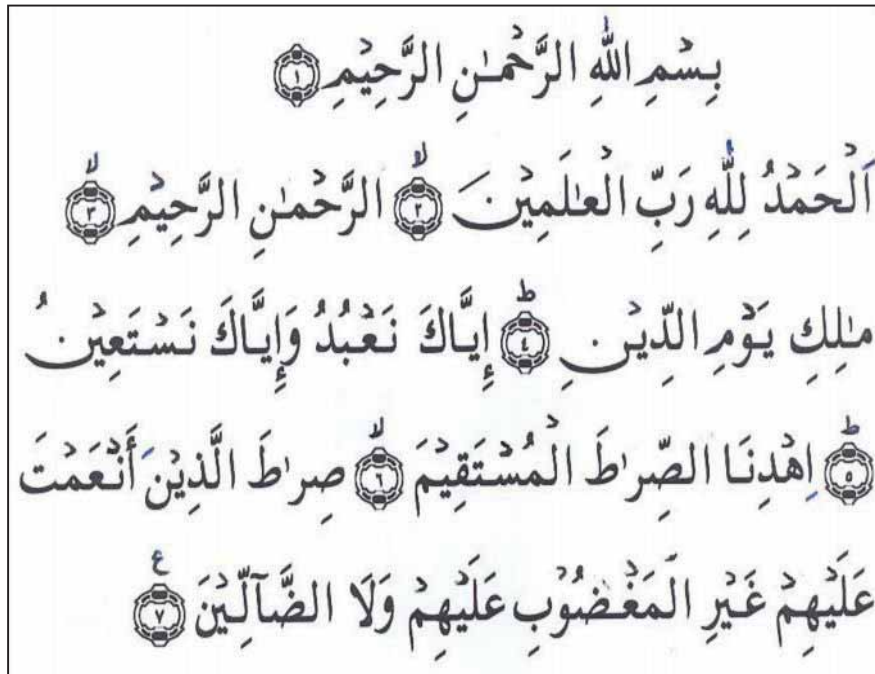 بِسْمِ اللّٰهِ الرَّحْمٰنِ الرَّحِيْمِ ۝١
اَلْحَمْدُ لِلّٰهِ رَبِّ الْعٰلَمِيْنَ ۝٢ۙ الرَّحْمٰنِ الرَّحِيْمِ ۝٣ۙ
مٰلِكِ يَوْمِ الدِّيْنِ ۝٤ؕ إِيَّاكَ نَعْبُدُ وَإِيَّاكَ نَسْتَعِيْنُ
۝٥ؕ اِهْدِنَا الصِّرٰطَ الْمُسْتَقِيْمَ ۝٦ۙ صِرٰطَ الَّذِيْنَ أَنْعَمْتَ
عَلَيْهِمْ غَيْرِ الْمَغْضُوْبِ عَلَيْهِمْ وَلَا الضَّآلِّيْنَ ۝٧ع